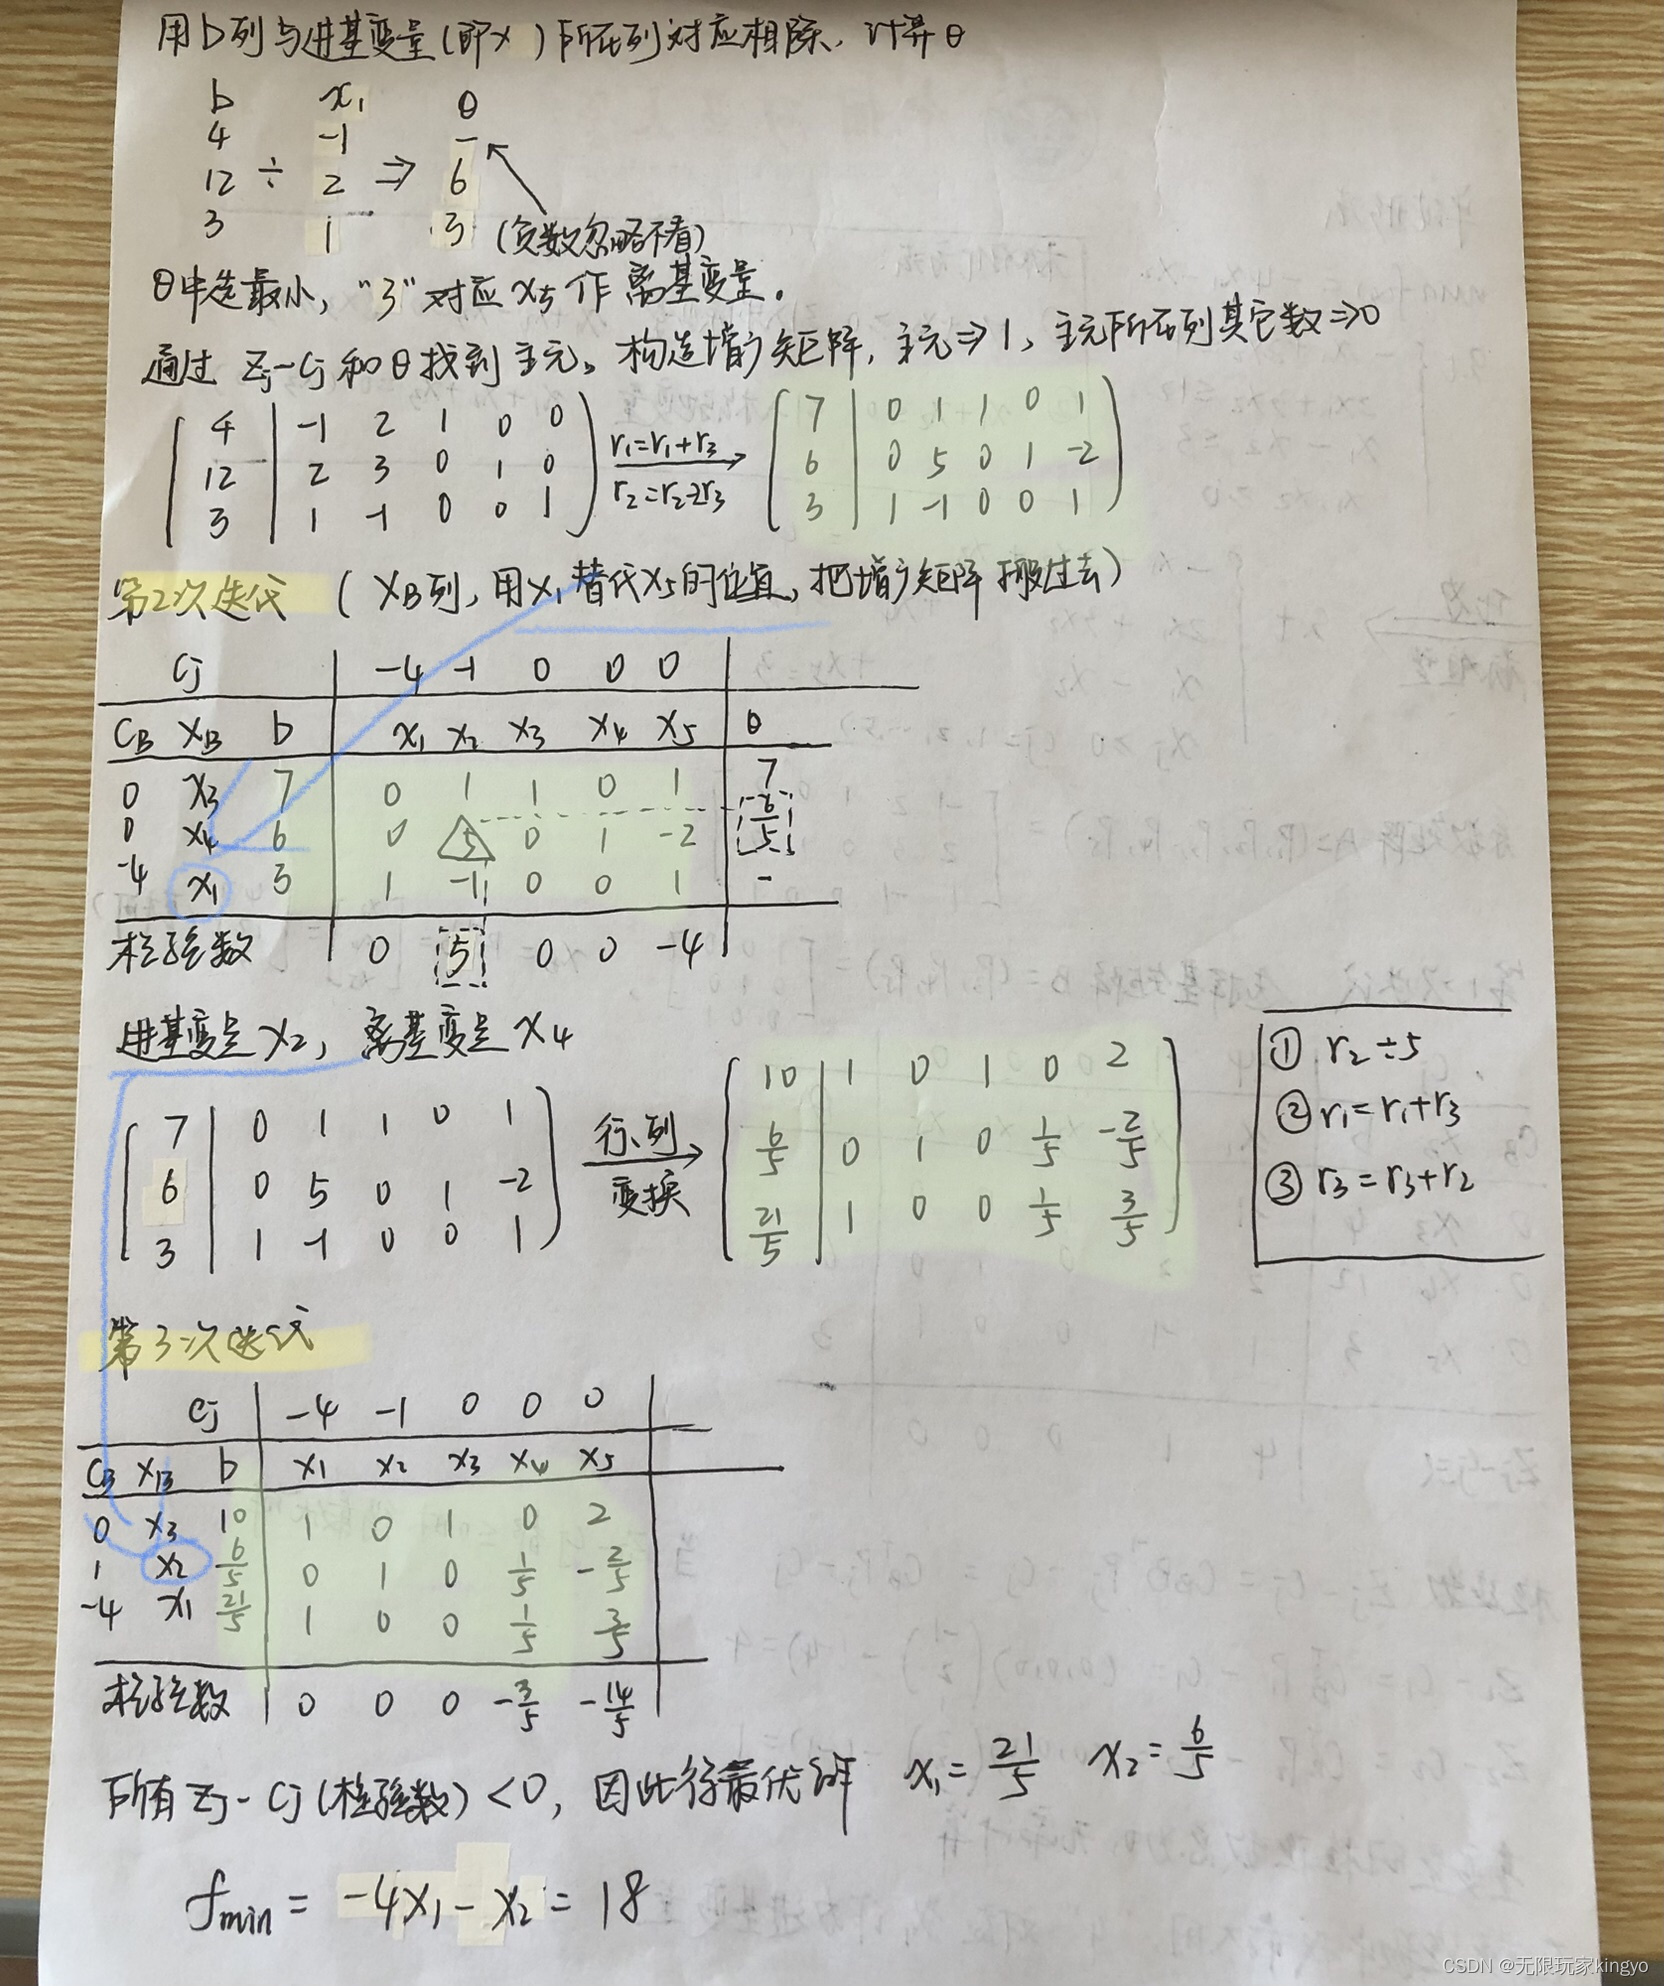 用b列与进基变量(即x )所在列对应相除，计算θ
b x₁ θ
4 -1 -
12 ÷ 2 ⇒ 6
3 1 3 (负数忽略不看)
θ中选最小，"3"对应x₅作离基变量。
通过 Zj-Cj 和θ找到主元。构造增广矩阵，主元⇒1，主元所在列其它数⇒0
4 | -1 2 1 0 0
12 | 2 3 0 1 0
3 | 1 -1 0 0 1
r₁=r₁+r₃
r₂=r₂-2r₃
7 | 0 1 1 0 1
6 | 0 5 0 1 -2
3 | 1 -1 0 0 1
第2次迭代 (XB列，用x₁替代x₅的位置，把增广矩阵搬过去)
Cj | -4 -1 0 0 0
CB XB b | x₁ x₂ x₃ x₄ x₅ | θ
0 x₃ 7 | 0 1 1 0 1 | 7
0 x₄ 6 | 0 5 0 1 -2 | 6/5
-4 x₁ 3 | 1 -1 0 0 1 | -
检验数 | 0 5 0 0 -4
进基变是x₂，离基变是x₄
7 | 0 1 1 0 1
6 | 0 5 0 1 -2
3 | 1 -1 0 0 1
行、列
变换
10 | 1 0 1 0 2
6/5 | 0 1 0 1/5 -2/5
21/5 | 1 0 0 1/5 3/5
① r₂÷5
② r₁=r₁+r₃
③ r₃=r₃+r₂
第3次迭代
Cj | -4 -1 0 0 0
CB XB b | x₁ x₂ x₃ x₄ x₅
0 x₃ 10 | 1 0 1 0 2
1 x₂ 6/5 | 0 1 0 1/5 -2/5
-4 x₁ 21/5 | 1 0 0 1/5 3/5
检验数 | 0 0 0 -3/5 -14/5
所有Zj-Cj(检验数)<0，因此得最优解 x₁=21/5 x₂=6/5
fmin = -4x₁-x₂ = 18
CSDN @无限玩家kingyo